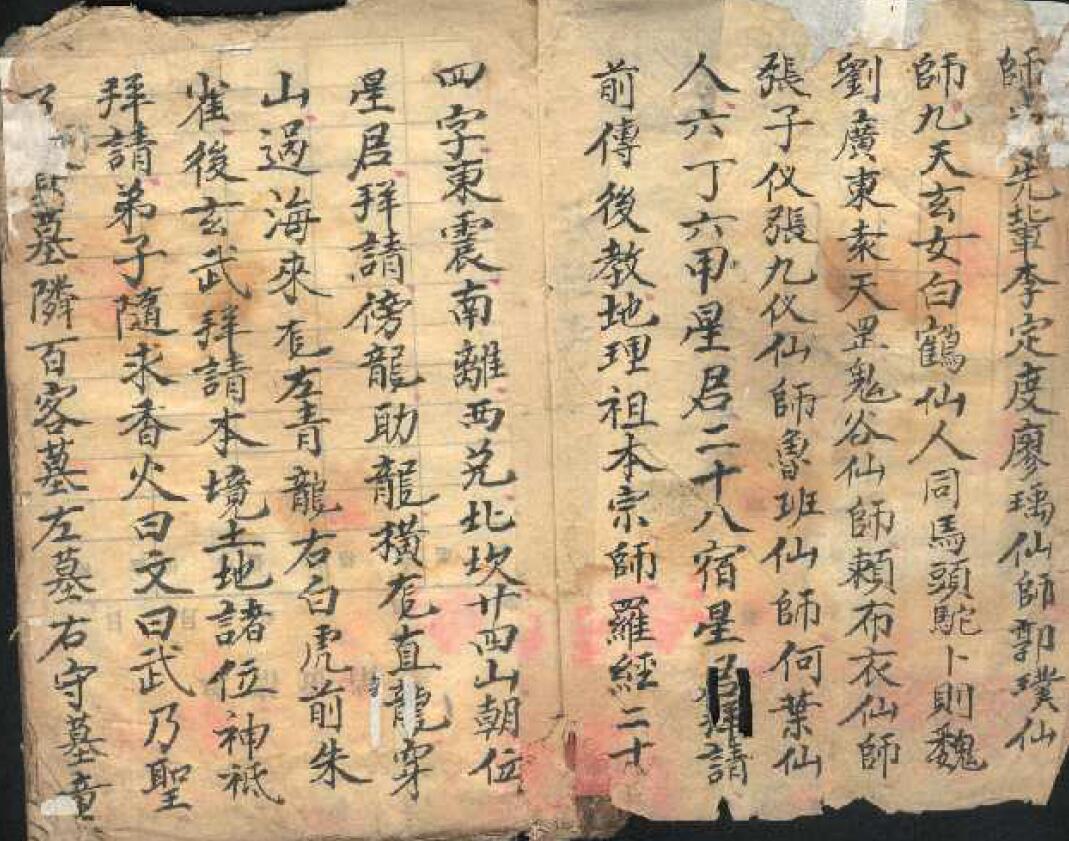 師 先輩李定度廖瑀仙師郭璞仙
師九天玄女白鶴仙人同馬頭駝卜則魏
劉廣東袁天罡鬼谷仙師賴布衣仙師
張子仪張九仪仙師魯班仙師何葉仙
人六丁六甲星君二十八宿星君拜請
前傳後教地理祖本宗師羅經二十
四字東震南離西兌北坎廿四山朝位
星君拜請傍龍助龍橫龍直龍穿
山過海來龍左青龍右白虎前朱
雀後玄武拜請本境土地諸位神祇
拜請弟子隨求香火曰文曰武乃聖
墓隣百客墓左墓右守墓童